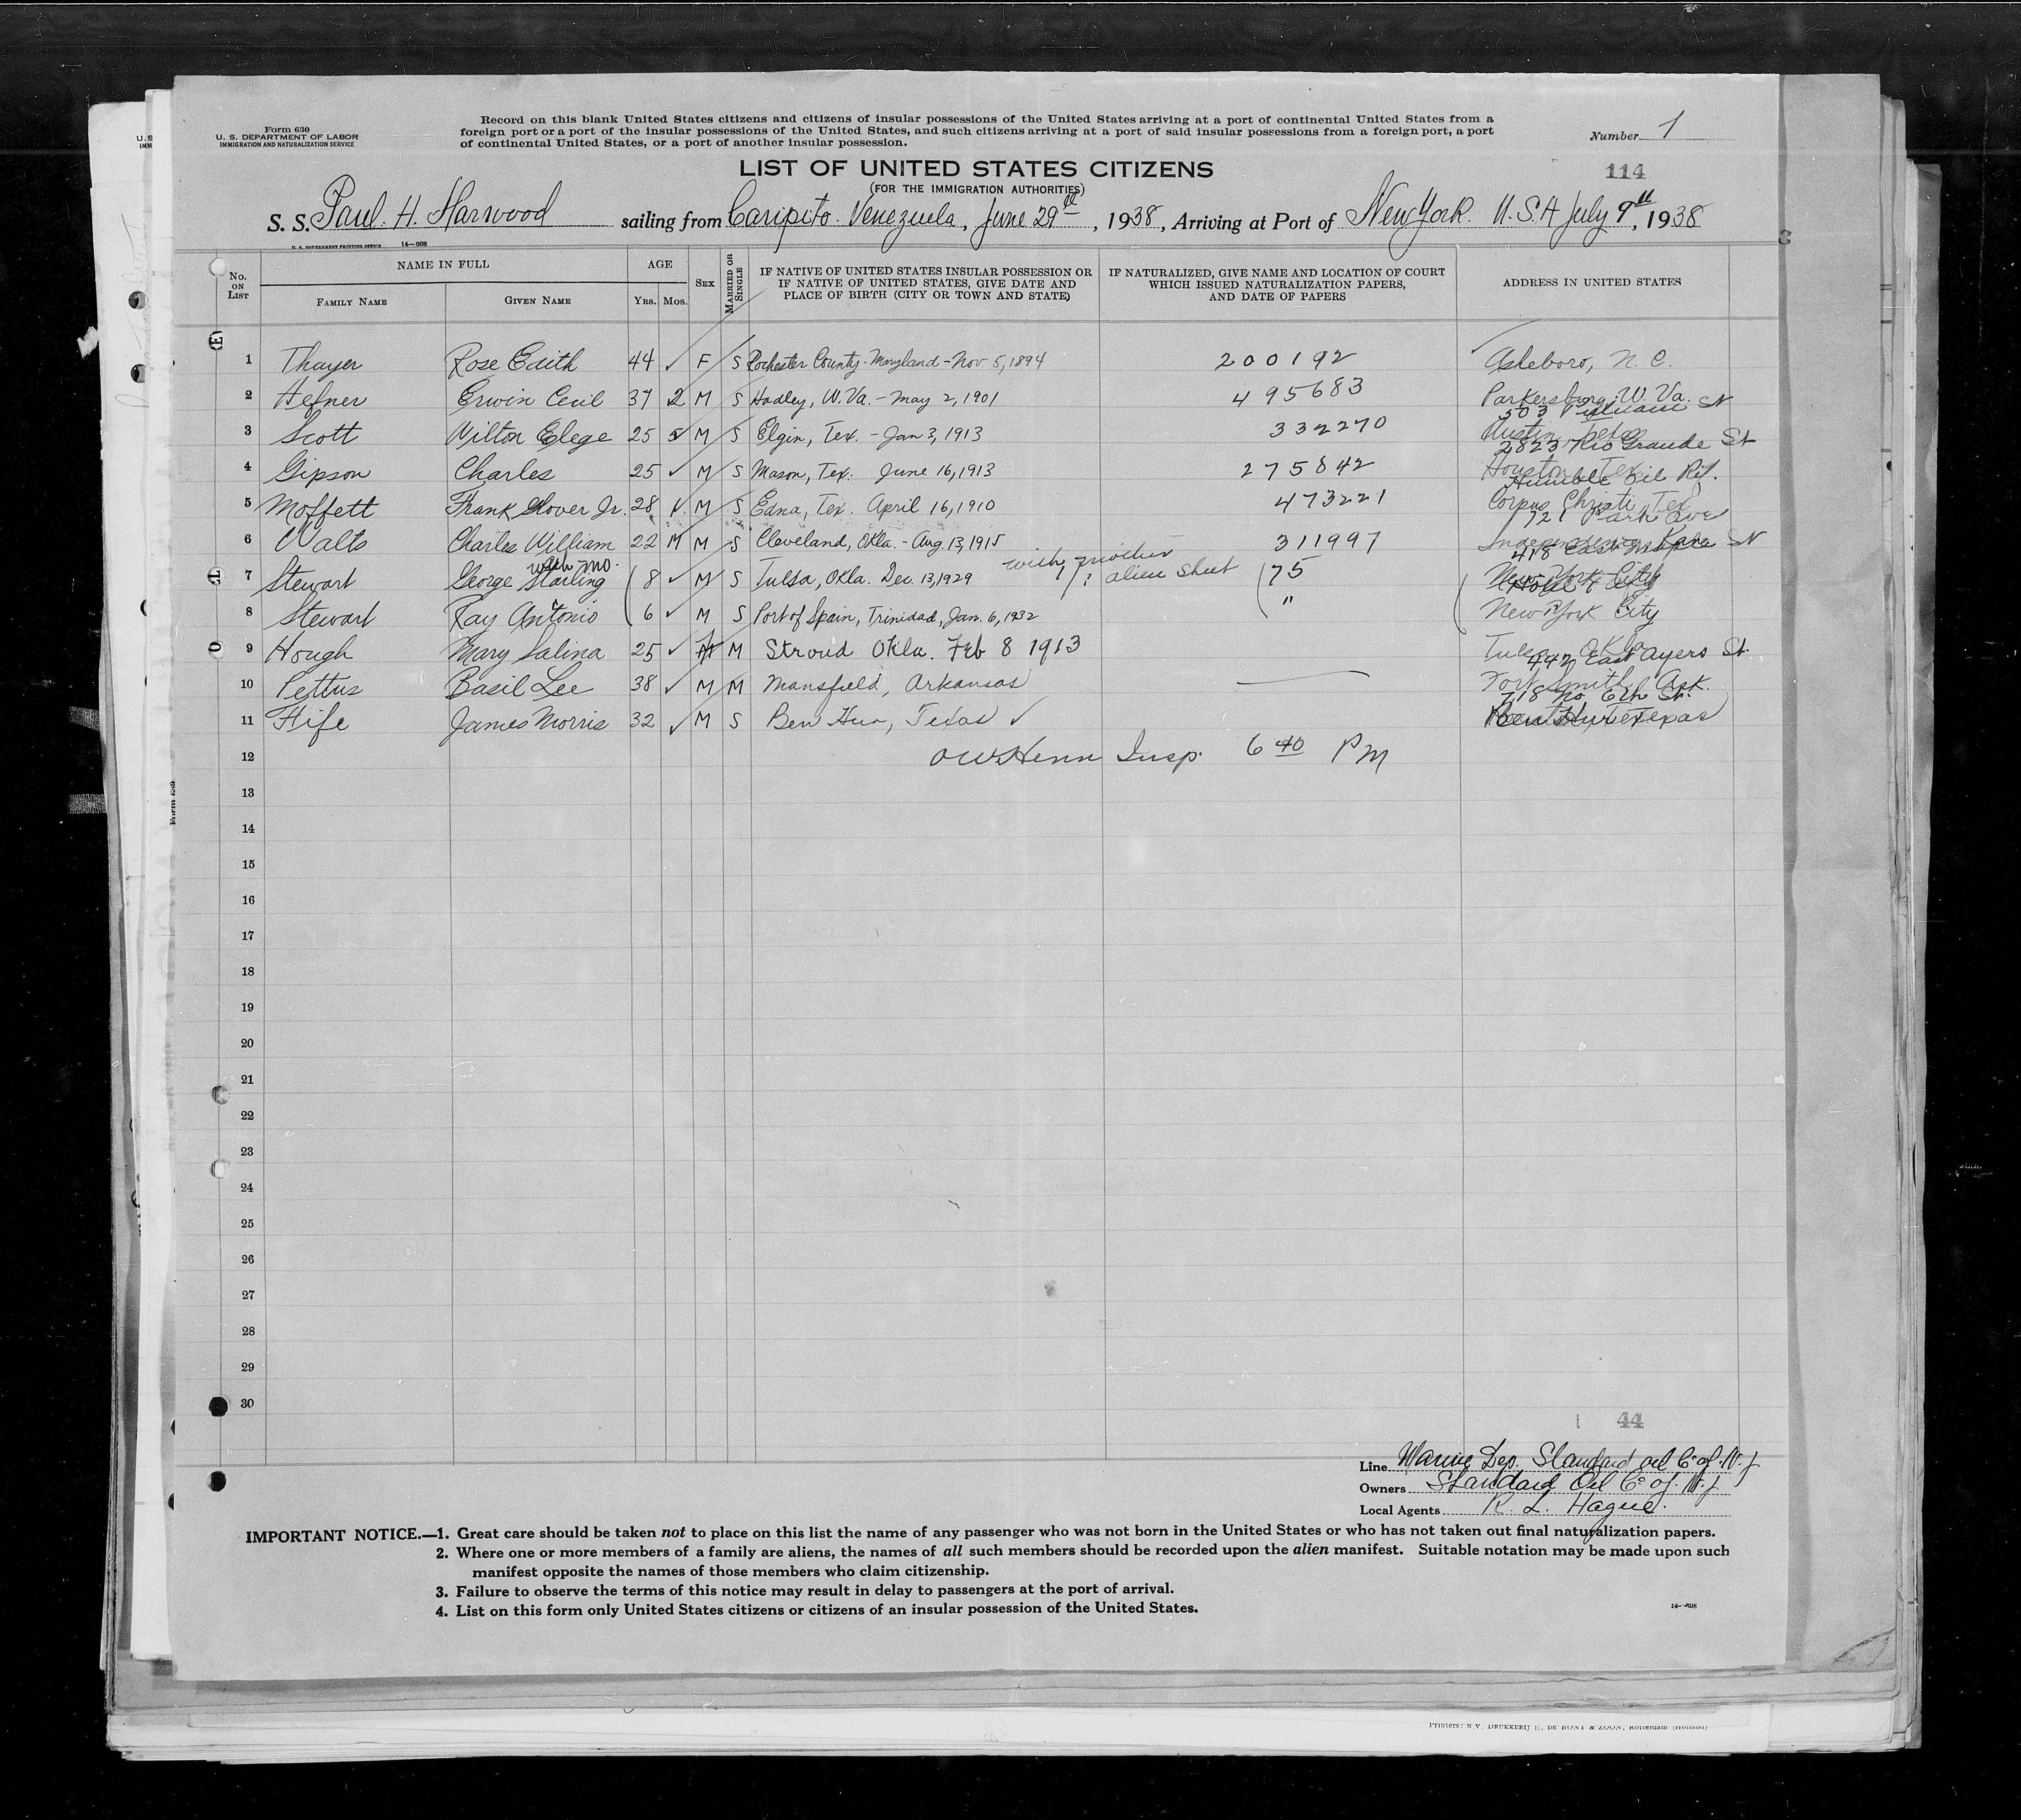 Form 630
U. S. DEPARTMENT OF LABOR
IMMIGRATION AND NATURALIZATION SERVICE
Record on this blank United States citizens and citizens of insular possessions of the United States arriving at a port of continental United States from a
foreign port or a port of the insular possessions of the United States, and such citizens arriving at a port of said insular possessions from a foreign port, a port
of continental United States, or a port of another insular possession.
Number 1
114
LIST OF UNITED STATES CITIZENS
(FOR THE IMMIGRATION AUTHORITIES)
S. S. Paul. H. Harwood sailing from Caripito. Venezuela, June 29th, 1938, Arriving at Port of New York. U.S.A July 9th, 1938
U. S. GOVERNMENT PRINTING OFFICE 14—608
No. ON LIST
NAME IN FULL
FAMILY NAME
GIVEN NAME
AGE
YRS.
MOS.
SEX
MARRIED OR SINGLE
IF NATIVE OF UNITED STATES INSULAR POSSESSION OR
IF NATIVE OF UNITED STATES, GIVE DATE AND
PLACE OF BIRTH (CITY OR TOWN AND STATE)
IF NATURALIZED, GIVE NAME AND LOCATION OF COURT
WHICH ISSUED NATURALIZATION PAPERS,
AND DATE OF PAPERS
ADDRESS IN UNITED STATES
1 Thayer Rose Edith 44 ✓ F S Rochester County - Maryland - Nov 5, 1894 200192 Asheboro, N. C.
2 Hefner Erwin Cecil 37 2 M S Hadley, W. Va. - May 2, 1901 495683 Parkersburg, W. Va.
503 St
3 Scott Wilton Elege 25 5 M S Elgin, Tex. - Jan 3, 1913 332270 Austin
2823 Rio Grande St
4 Gipson Charles 25 ✓ M S Mason, Tex. June 16, 1913 275842 Houston Tex
Humble Oil Rf.
5 Moffett Frank Glover Jr. 28 M S Edna, Tex. April 16, 1910 473221 Corpus Christi, Tex
721 Park Ave
6 Walts Charles William 22 M M S Cleveland, Okla. - Aug. 13, 1915 311997 Independence Kans
418 East St
with mo.
with mother
7 Stewart George Starling 8 ✓ M S Tulsa, Okla. Dec. 13, 1929 alien sheet 75 New York City
8 Stewart Ray Antonio 6 ✓ M S Port of Spain, Trinidad, Jan. 6, 1932 " New York City
9 Hough Mary Salina 25 ✓ M Stroud Okla. Feb 8 1913 Tulsa, Okla
442 East Ayers St.
10 Pettus Basil Lee 38 ✓ M M Mansfield, Arkansas Fort Smith Ark.
718 No 6th St.
11 Fife James Morris 32 ✓ M S Ben Hur, Texas ✓ Ben Hur Texas
12
OW Henn Insp. 6 40 PM
13
14
15
16
17
18
19
20
21
22
23
24
25
26
27
28
29
30
44
Line Marine Dep. Standard oil Co of N. J
Owners Standard Oil Co of. N. J
Local Agents R. L. Hague.
IMPORTANT NOTICE.—1. Great care should be taken not to place on this list the name of any passenger who was not born in the United States or who has not taken out final naturalization papers.
2. Where one or more members of a family are aliens, the names of all such members should be recorded upon the alien manifest. Suitable notation may be made upon such
manifest opposite the names of those members who claim citizenship.
3. Failure to observe the terms of this notice may result in delay to passengers at the port of arrival.
4. List on this form only United States citizens or citizens of an insular possession of the United States.
14—608
Printers: N.V. DRUKKERIJ E. DE BONT & ZOON, Rotterdam (Holland)